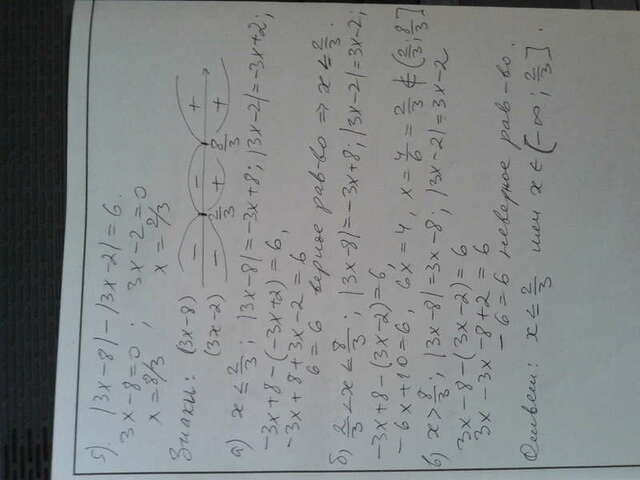 5). |3x-8|-|3x-2|=6.
3x-8=0; 3x-2=0
x=8/3 x=2/3
Знаки: (3x-8) - - +
(3x-2) - 2/3 + 8/3 +
а) x≤2/3; |3x-8|=-3x+8; |3x-2|=-3x+2;
-3x+8-(-3x+2)=6,
-3x+8+3x-2=6
6=6 верное рав-во => x≤2/3.
б) 2/3<x≤8/3; |3x-8|=-3x+8; |3x-2|=3x-2;
-3x+8-(3x-2)=6,
-6x+10=6, 6x=4, x=4/6=2/3 ∉(2/3;8/3]
в) x>8/3; |3x-8|=3x-8; |3x-2|=3x-2
3x-8-(3x-2)=6
3x-3x-8+2=6
-6=6 неверное рав-во.
Ответ: x≤2/3 или x∈(-∞;2/3].